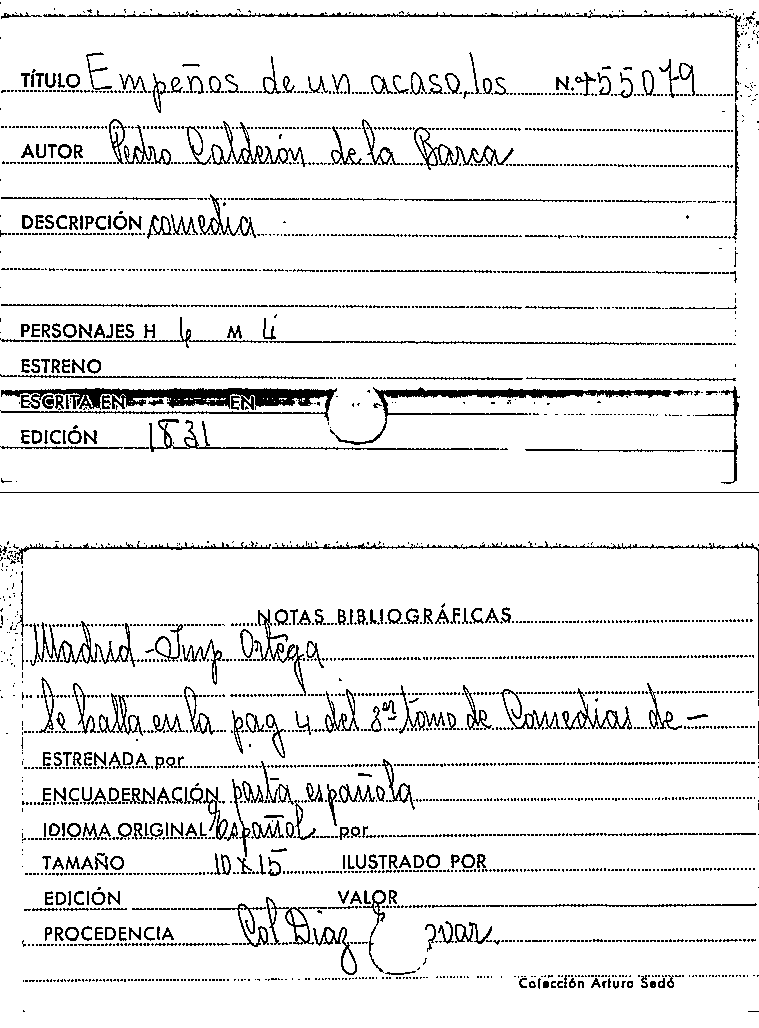 TÍTULO Empeños de un acaso, los N.º 55079
AUTOR Pedro Calderón de la Barca
DESCRIPCIÓN comedia
PERSONAJES H 6 M 4
ESTRENO
ESCRITA EN EN
EDICIÓN 1831
NOTAS BIBLIOGRÁFICAS
Madrid - Imp Ortega
Se halla en la pag 4 del 3er tomo de Comedias de —
ESTRENADA por
ENCUADERNACIÓN pasta española
IDIOMA ORIGINAL Español por
TAMAÑO 10 x 15 ILUSTRADO POR
EDICIÓN VALOR
PROCEDENCIA Col Diaz
Colección Arturo Sedó